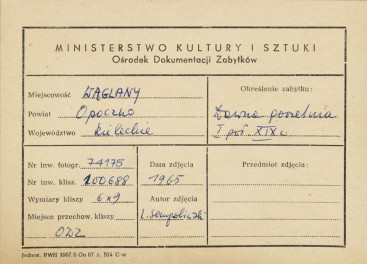 MINISTERSTWO KULTURY I SZTUKI
Ośrodek Dokumentacji Zabytków
Miejscowość WĄGLANY
Powiat Opoczno
Województwo kieleckie
Określenie zabytku:
Dawna gorzelnia
I poł. XIX w.
Nr inw. fotogr. 74175
Nr inw. klisz. 100688
Wymiary kliszy 6x9
Miejsce przechow. kliszy
ODZ
Data zdjęcia
1965
Autor zdjęcia
Przedmiot zdjęcia:
Jednor. PWH 1967.5 On 67 z. 164 C-w